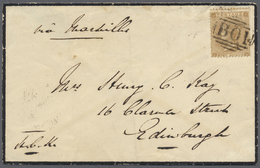 via Marseilles
B01
Mrs Henry C. Kay
16 Clarence Street
Edinburgh